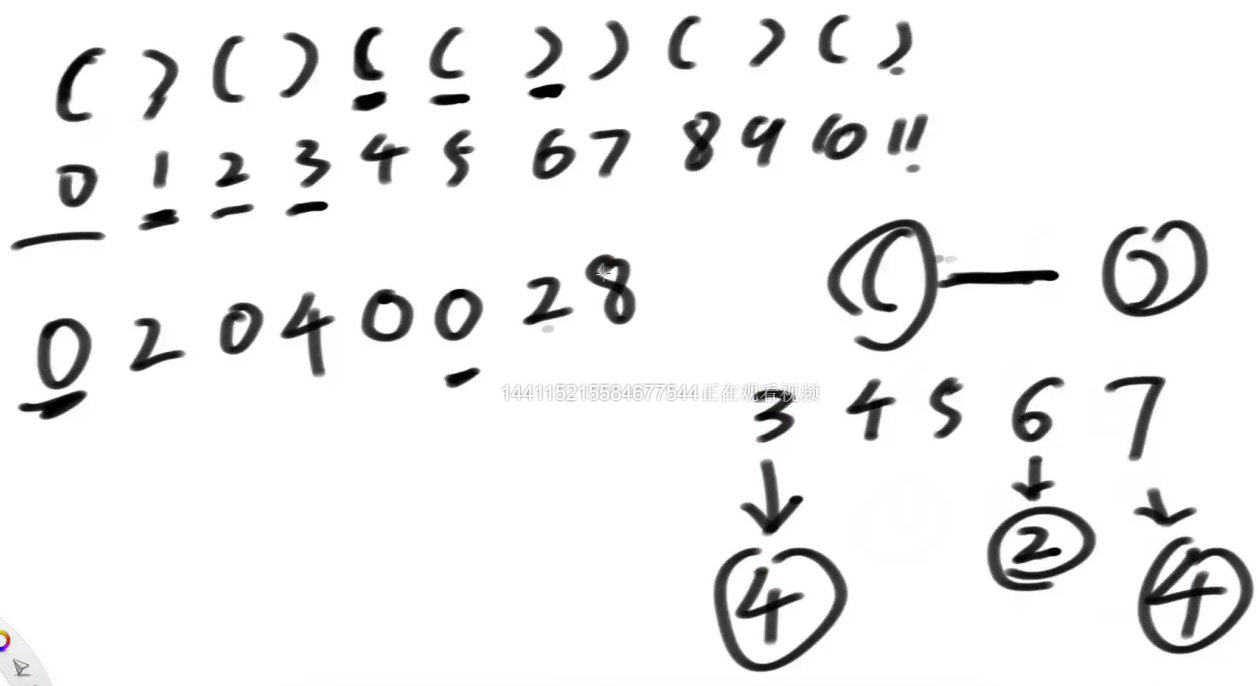 ( ) ( ) ( ( ) ) ( ) ( )
0 1 2 3 4 5 6 7 8 9 10 11
0 2 0 4 0 0 2 8
( — )
144115215584677544正在观看视频
3 4 5 6 7
4 2 4